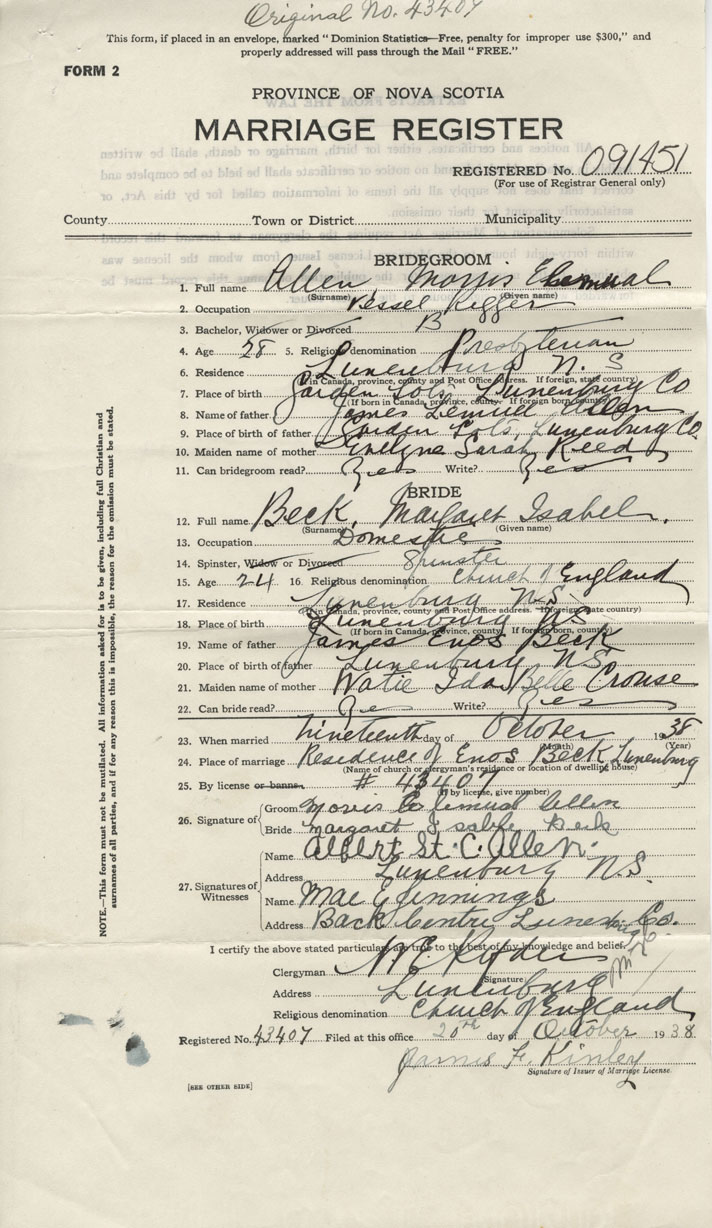 Original No. 43407
This form, if placed in an envelope, marked "Dominion Statistics—Free, penalty for improper use $300," and
properly addressed will pass through the Mail "FREE."
FORM 2
PROVINCE OF NOVA SCOTIA
MARRIAGE REGISTER
REGISTERED No. 091451
(For use of Registrar General only)
County Town or District Municipality
BRIDEGROOM
1. Full name Allen, Morris
(Surname) (Given name)
2. Occupation Vessel Rigger
3. Bachelor, Widower or Divorced B
4. Age 28 5. Religious denomination Presbyterian
6. Residence Lunenburg N. S
(If in Canada, province, county and Post Office address. If foreign, state country)
7. Place of birth Garden Lots, Lunenburg Co
(If born in Canada, province, county. If foreign born, country)
8. Name of father James Lemuel Allen
9. Place of birth of father Garden Lots, Lunenburg Co.
10. Maiden name of mother Evelyne Sarah Reed
11. Can bridegroom read? Yes Write? Yes
BRIDE
12. Full name Beck, Margaret Isabel.
(Surname) (Given name)
13. Occupation Domestic
14. Spinster, Widow or Divorced Spinster
15. Age 24 16. Religious denomination Church of England
17. Residence Lunenburg N.S.
(If in Canada, province, county and Post Office address. If foreign, state country)
18. Place of birth Lunenburg NS
(If born in Canada, province, county. If foreign born, country)
19. Name of father James Enos Beck
20. Place of birth of father Lunenburg NS
21. Maiden name of mother Ida Belle Crouse
22. Can bride read? Yes Write? Yes
23. When married Nineteenth day of October 1938
(Month) (Year)
24. Place of marriage Residence of Enos Beck Lunenburg
(Name of church or clergyman's residence or location of dwelling house)
25. By license or banns # 43407
(If by license, give number)
26. Signature of Groom Allen
Bride Margaret Beck
27. Signatures of Witnesses
Name Albert St. C. Allen.
Address Lunenburg N.S.
Name Mae E Jennings
Address Back Centre Lunen. Co.
I certify the above stated particulars are true to the best of my knowledge and belief.
Clergyman
Signature
Address Lunenburg
Religious denomination Church of England
Registered No. 43407 Filed at this office 20th day of October 1938
James F. Kinley
Signature of Issuer of Marriage License
[SEE OTHER SIDE]
NOTE.—This form must not be mutilated. All information asked for is to be given, including full Christian and
surnames of all parties, and if for any reason this is impossible, the reason for the omission must be stated.